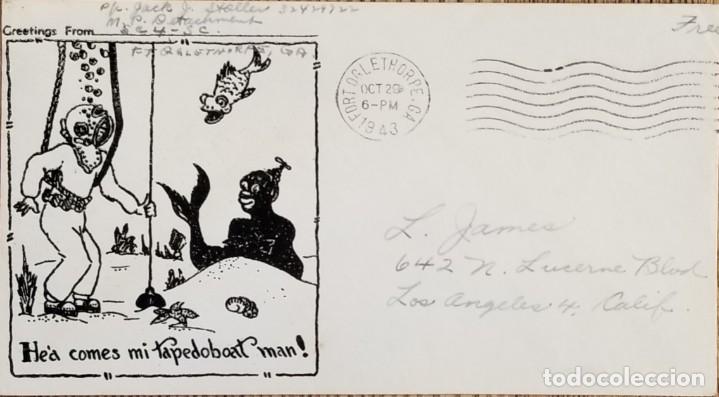 Pfc. Jack J. Stoller
M.P. Detachment
Greetings From SC4-SC.
FT OGLETHORPE, GA
Free
FORT OGLETHORPE, GA.
OCT 28
6-PM
1943
L. James
642 N. Lucerne Blvd
Los Angeles 4, Calif.
He'a comes mi tapedoboat man!
todocoleccion.net